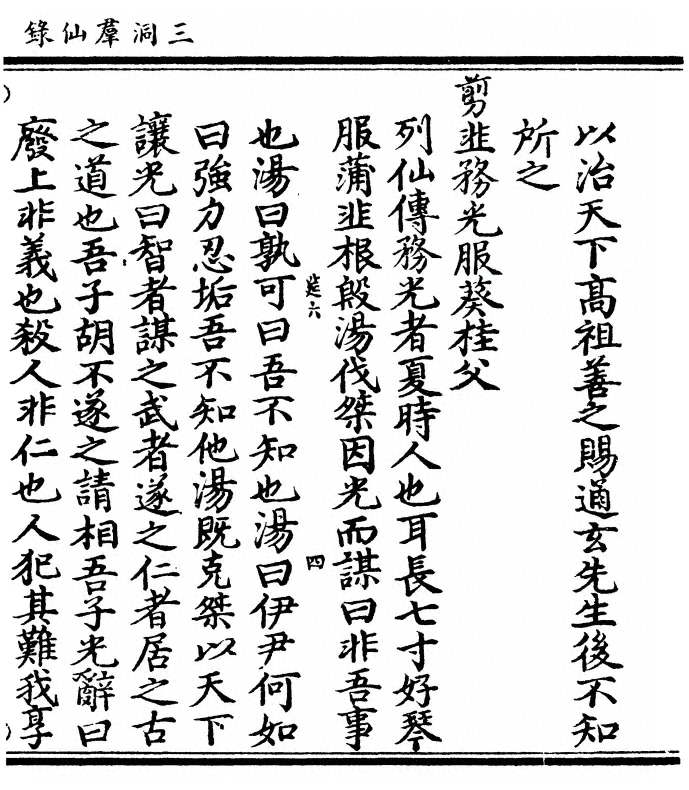 三洞羣仙錄
以治天下高祖善之賜通玄先生後不知
所之
剪韭務光服葵桂父
列仙傳務光者夏時人也耳長七寸好琴
服蒲韭根殷湯伐桀因光而謀曰非吾事
𨑳六
四
也湯曰孰可曰吾不知也湯曰伊尹何如
曰強力忍垢吾不知他湯既克桀以天下
讓光曰智者謀之武者遂之仁者居之古
之道也吾子胡不遂之請相吾子光辭曰
廢上非義也殺人非仁也人犯其難我享